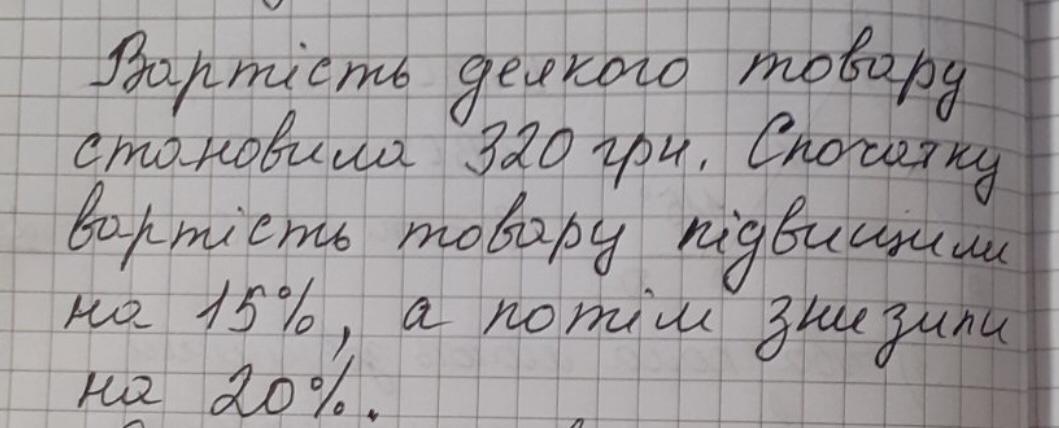 Вартість деякого товару
становила 320 грн. Спочатку
вартість товару підвищили
на 15%, а потім знизили
на 20%.